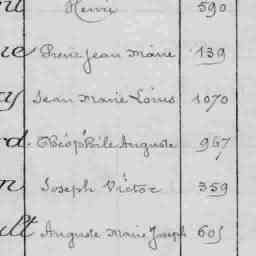 Henri 590
Pierre Jean Marie 139
Jean Marie Louis 1070
Théophile Auguste 967
Joseph Victor 359
Auguste Marie Joseph 605